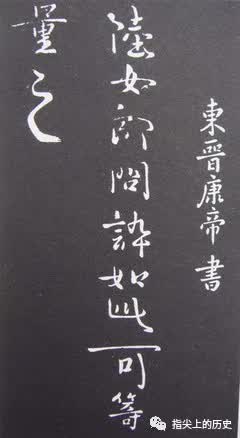 東晉康帝書
陸女郎問訴如此可等
量之
指尖上的历史